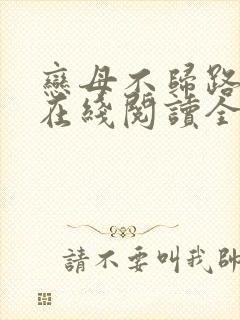 戀母不歸路
在綫閱讀全
請不要叫我帥